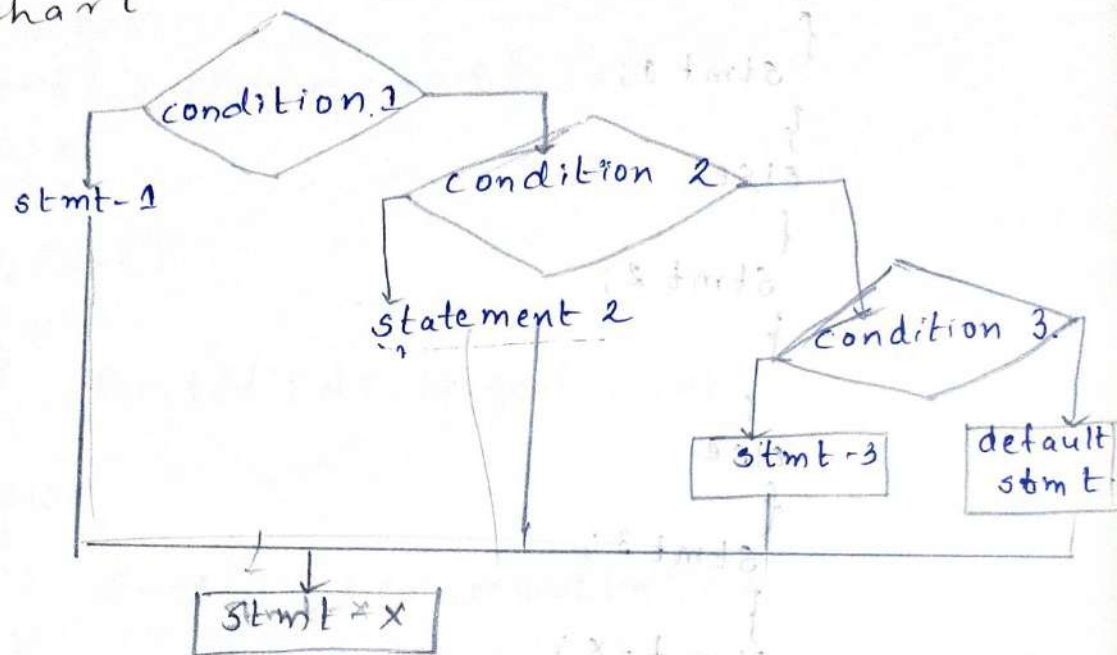 hart
condition 1
condition 2
stmt-1
statement 2
condition 3.
stmt-3
default
stmt
stmt-x